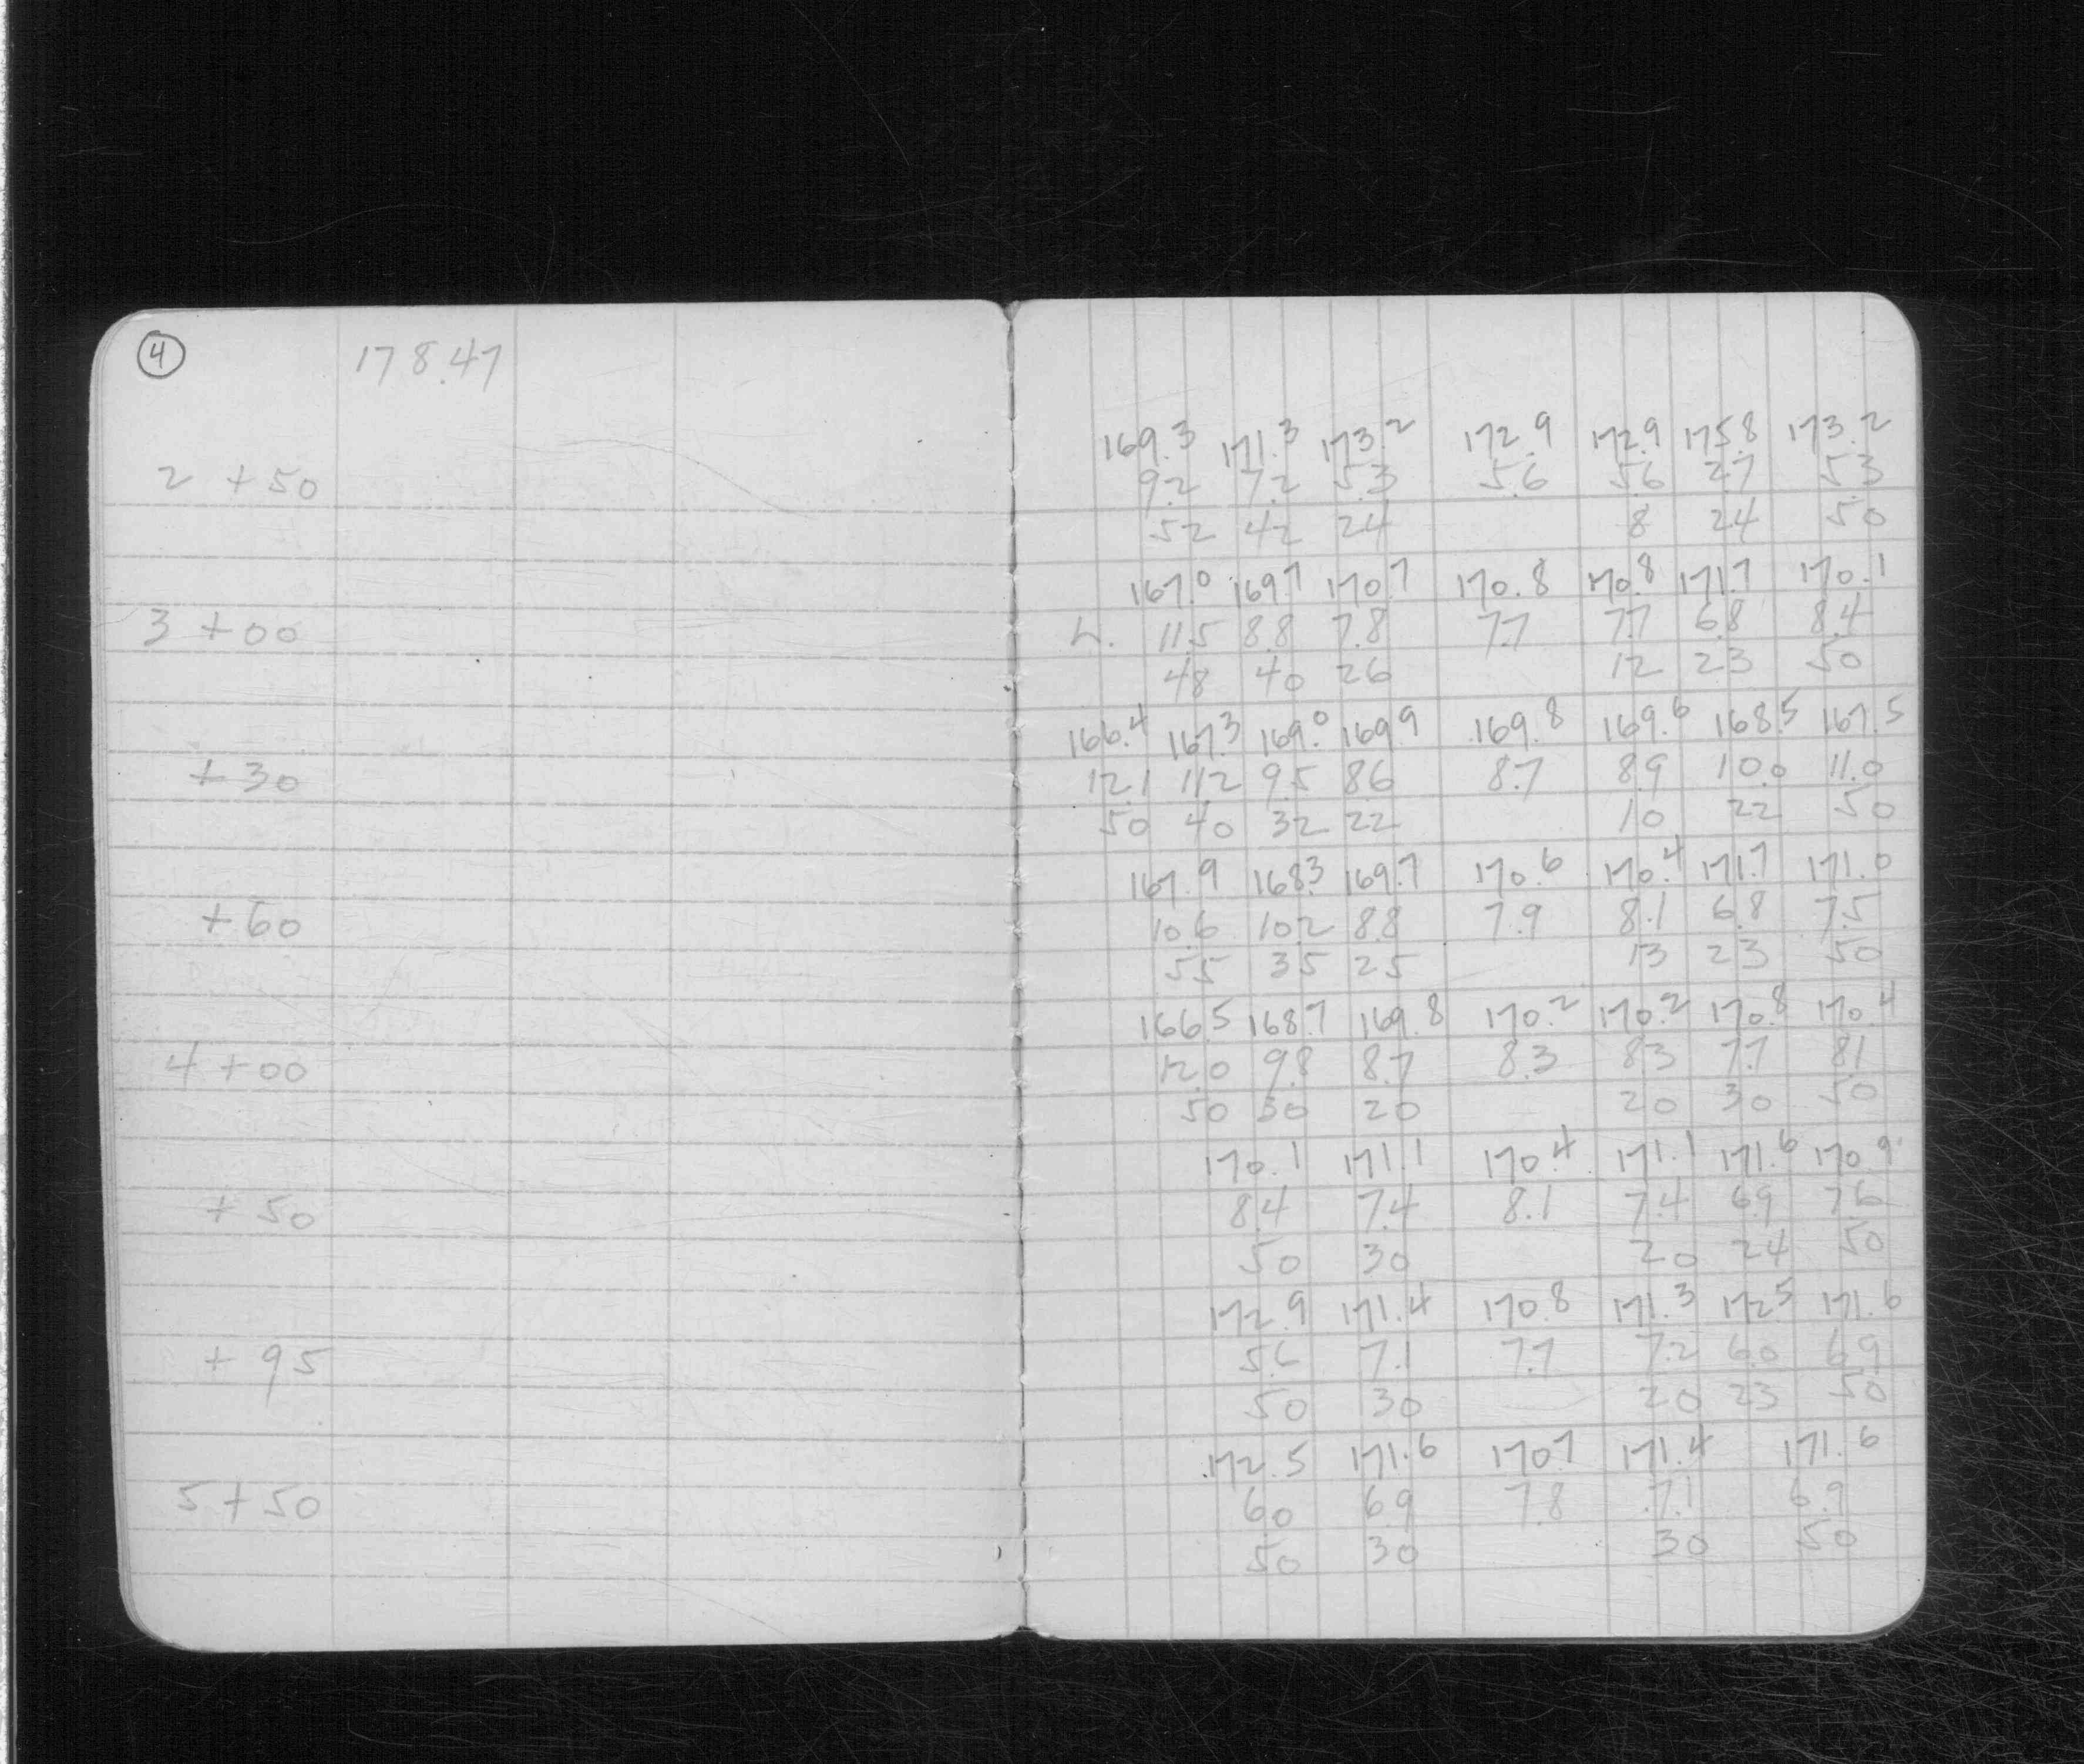 4 178.47
169.3 171.3 173.2 172.9 172.9 175.8 173.2
2 +50 9.2 7.2 5.3 5.6 5.6 2.7 5.3
52 42 24 8 24 50
167.0 169.7 170.7 170.8 170.8 171.7 170.1
3 +00 11.5 8.8 7.8 7.7 7.7 6.8 8.4
48 40 26 12 23 50
166.4 167.3 169.0 169.9 169.8 169.6 168.5 167.5
+30 12.1 11.2 9.5 8.6 8.7 8.9 10.0 11.0
50 40 32 22 10 22 50
167.9 168.3 169.7 170.6 170.4 171.7 171.0
+60 10.6 10.2 8.8 7.9 8.1 6.8 7.5
55 35 25 13 23 50
166.5 168.7 169.8 170.2 170.2 170.8 170.4
4 +00 12.0 9.8 8.7 8.3 8.3 7.7 8.1
50 30 20 20 30 50
170.1 171.1 170.4 171.1 171.6 170.9
+50 8.4 7.4 8.1 7.4 6.9 7.6
50 30 20 24 50
172.9 171.4 170.8 171.3 172.5 171.6
+95 5.6 7.1 7.7 7.2 6.0 6.9
50 30 20 23 50
172.5 171.6 170.7 171.4 171.6
5+50 6.0 6.9 7.8 7.1 6.9
50 30 30 50